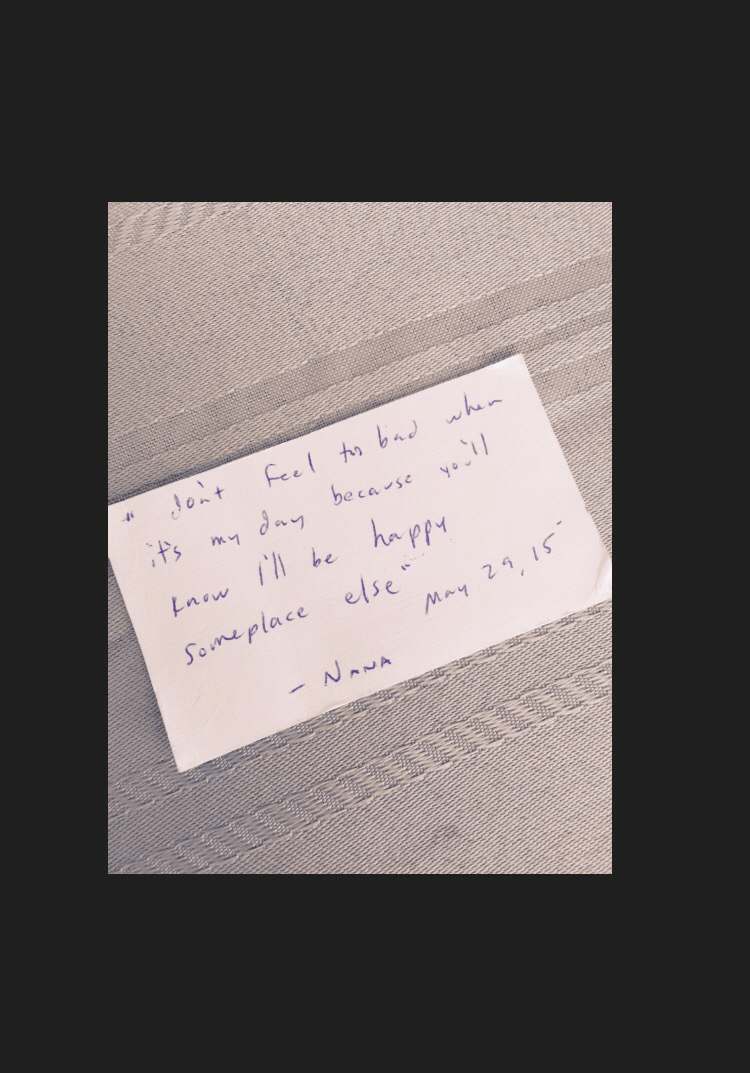 " don't feel to bad when
it's my day because you'll
know I'll be happy
someplace else"
May 29, 15
- NANA